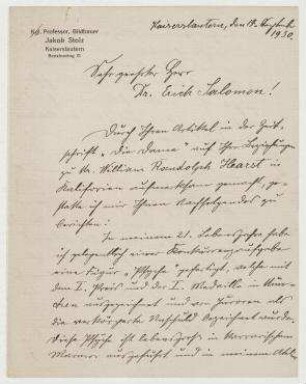 Kgl. Professor, Bildhauer
Jakob Stolz
Kaiserslautern
Kaiserslautern, den 19. August
1930.
Sehr geehrter Herr
Dr. Erich Salomon!
Durch Ihren Artikel in der Zeit-
schrift „Die Dame" auf Ihre Beziehungen
zu Mr. William Randolph Hearst in
Kalifornien aufmerksam gemacht, ge-
statte ich mir Ihnen Nachfolgendes zu
berichten:
In meinem 21. Lebensjahre habe
ich gelegentlich einer Konkurrenzaufgabe
eine Figur „Psyche" gefertigt, welche mit
dem I. Preis und der I. Medaille in Mün-
chen ausgezeichnet und von Juroren als
die verkörperte Unschuld bezeichnet wurde.
Diese Psyche ist lebensgroß in carrarischem
Marmor ausgeführt und in meinem Atelier